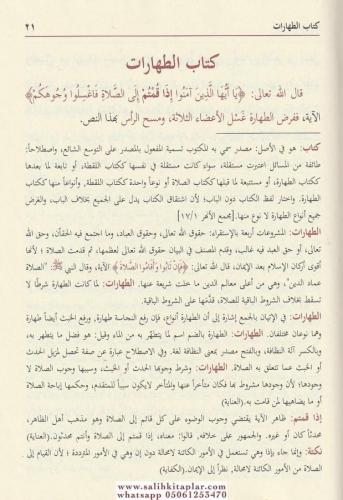 كتاب الطهارات ٢١
كتاب الطهارات
قال الله تعالى: ﴿يَا أَيُّهَا الَّذِينَ آمَنُوا إِذَا قُمْتُمْ إِلَى الصَّلَاةِ فَاغْسِلُوا وُجُوهَكُمْ﴾
الآية، ففرض الطهارة غَسْل الأعضاء الثلاثة، ومسح الرأس بهذا النص.
كتاب: هو في الأصل: مصدر سمي به المكتوب تسمية المفعول بالمصدر على التوسع الشائع، واصطلاحاً:
طائفة من المسائل اعتبرت مستقلة، سواء كانت مستقلة في نفسها ككتاب اللقطة، أو تابعة لما بعدها
ككتاب الطهارة، أو مستتبعة لما قبلها ككتاب الصلاة أو نوعاً واحدة ككتاب اللقطة، وأنواعاً منها ككتاب
الطهارة. واختار لفظ الكتاب دون الباب؛ لأن اشتقاق الكتاب يدل على الجميع بخلاف الباب، والغرض
جميع أنواع الطهارة لا نوع منها. [مجمع الأنهر ١٧/١]
الطهارات: المشروعات أربعة بالاستقراء: حقوق الله تعالى، وحقوق العباد، وما اجتمع فيه الحقان، وحق الله
تعالى، أو حق العبد فيه غالب، وقدم المصنف في البيان حقوق الله تعالى لعظمها، ثم قدمت الصلاة؛ لأنها
أقوى أركان الإسلام بعد الإيمان، قال الله تعالى: ﴿فَإِنْ تَابُوا وَأَقَامُوا الصَّلَاةَ﴾ الآية، وقال النبي ﷺ: "الصلاة
عماد الدين"، وهي من أعلى معالم الدين ما خلت شريعة عنها. الطهارات: لما كانت الطهارة شرطًا لا
تسقط بخلاف الشروط الباقية للصلاة، قدّمها على الشروط الباقية.
الطهارات: في الإتيان بالجمع إشارة إلى أن الطهارة أنواع، فإن رفع النجاسة طهارة، ورفع الخبث أيضاً طهارة
وهما نوعان مختلفان. الطهارات: الطهارة بالضم اسم لما يتطهّر به من الماء وقيل: هو فضل ما يتطهر به،
وبالكسر آلة النظافة، وبالفتح مصدر بمعنى النظافة لغة. وفي الاصطلاح عبارة عن صفة تحصل لمزيل الحدث
أو الخبث عما تتعلق به الصلاة. الطهارات: وشرط وجوبها الحدث أو الخبث، وسببها وجوب الصلاة لا
وجودها؛ لأن وجودها مشروط بها فكان متأخراً عنها والمتأخر لايكون سبباً للمتقدم، وحكمها إباحة الصلاة
أو ما يضاهيها لمن قامت به. (العناية)
إذا قمتم: ظاهر الآية يقتضي وجوب الوضوء على كل قائم إلى الصلاة وهو مذهب أهل الظاهر،
محدثًا كان أو غيره. والجمهور على خلافه، قالوا: معناه، إذا قمتم إلى الصلاة وأنتم محدثون.(العناية)
نكتة: وإنما جاء بإذا وهي تستعمل في أمر كائن لامحالة دون إن وهي في الأمور المترددة؛ لأن القيام إلى
الصلاة من الأمور الكائنة لامحالة، نظراً إلى الإيمان.(الكفاية)
www.salihkitaplar.com
whatsapp 05061253470